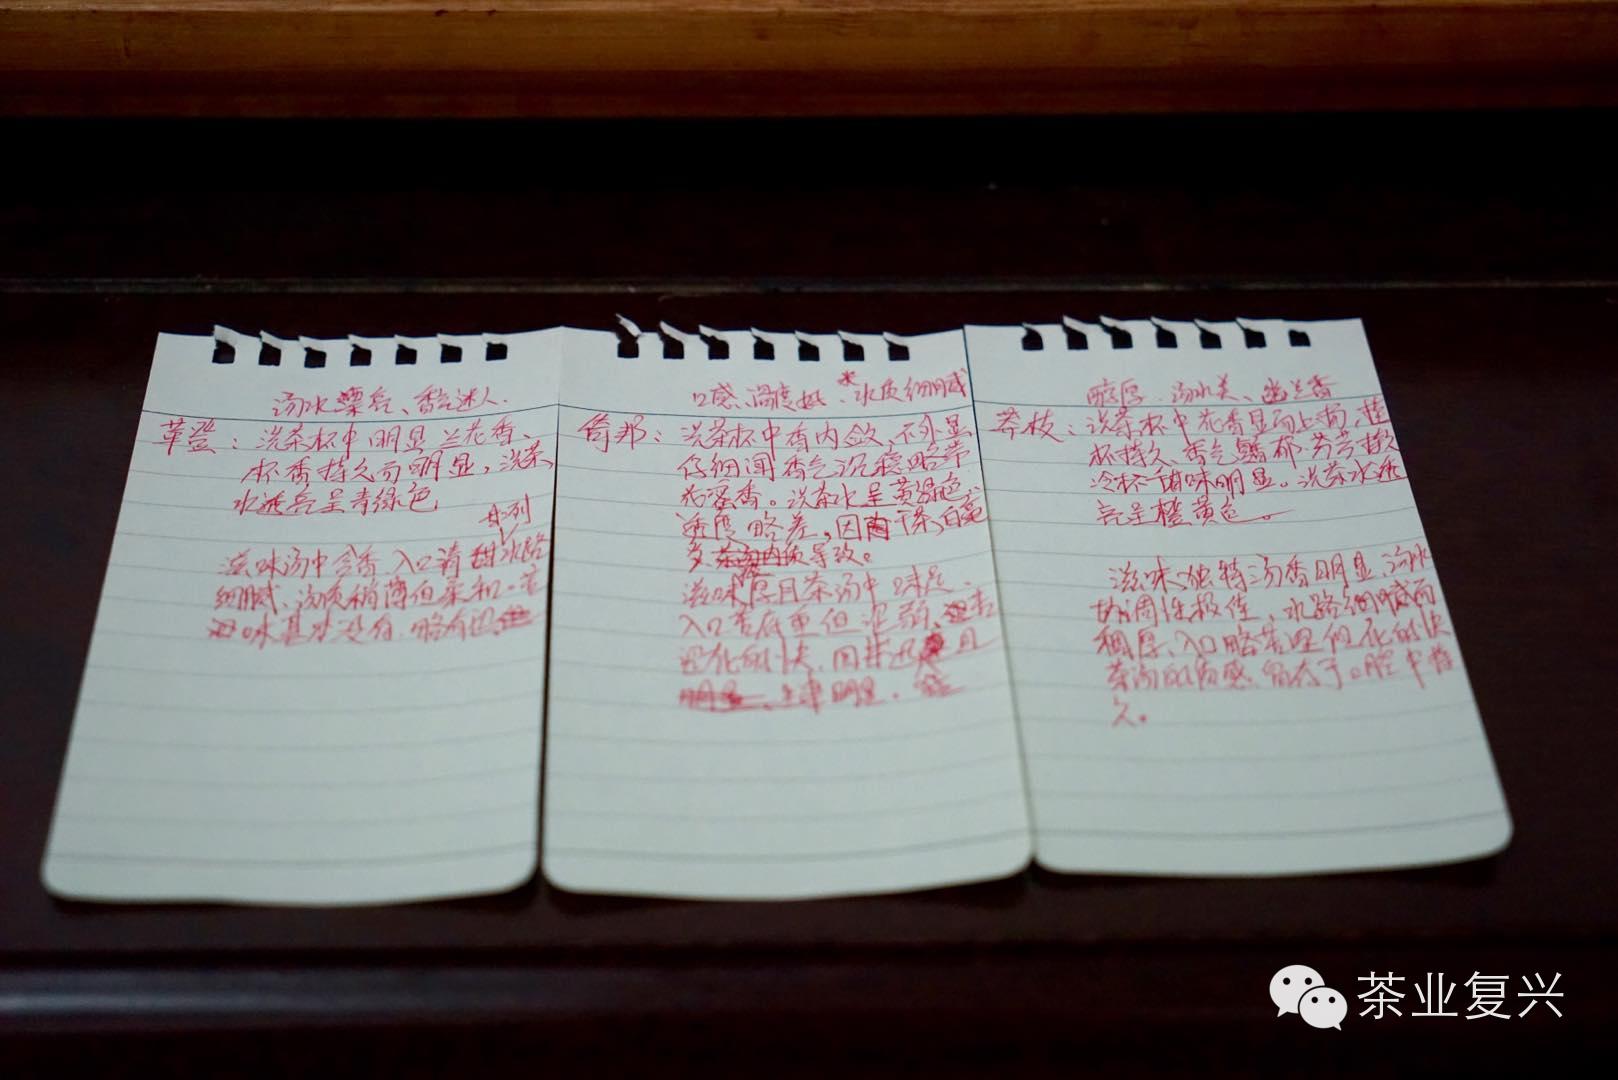 汤水漂亮、香气迷人.
革登：洗茶杯中明显兰花香、
杯香持久而明显，洗茶
水透亮呈青绿色
滋味汤中含香 入口清甜 水路
细腻、汤质稍薄但柔和。苦
味基本没有，略有涩
口感、润度好、水质细腻
倚邦：洗茶杯中香内敛，不外显
仔细闻香气沉稳略带
花蜜香。洗茶水呈黄绿色、
透度略差，因干茶白毫
多 导致。
滋味厚且茶汤中味足、
入口苦底重但涩弱、苦
涩化的快、回甘迅 且
生津明显.
醇厚、汤水美、幽兰香
莽枝：洗茶杯中花香显而上扬，挂
杯持久、香气馥郁 芬芳持久
冷杯甜味明显。洗茶水透
亮呈橙黄色。
滋味独特汤香明显、汤水
协调性极佳、水路细腻而
稠厚、入口略苦涩但化的快
茶汤的质感 留存于口腔中持
久。
茶业复兴